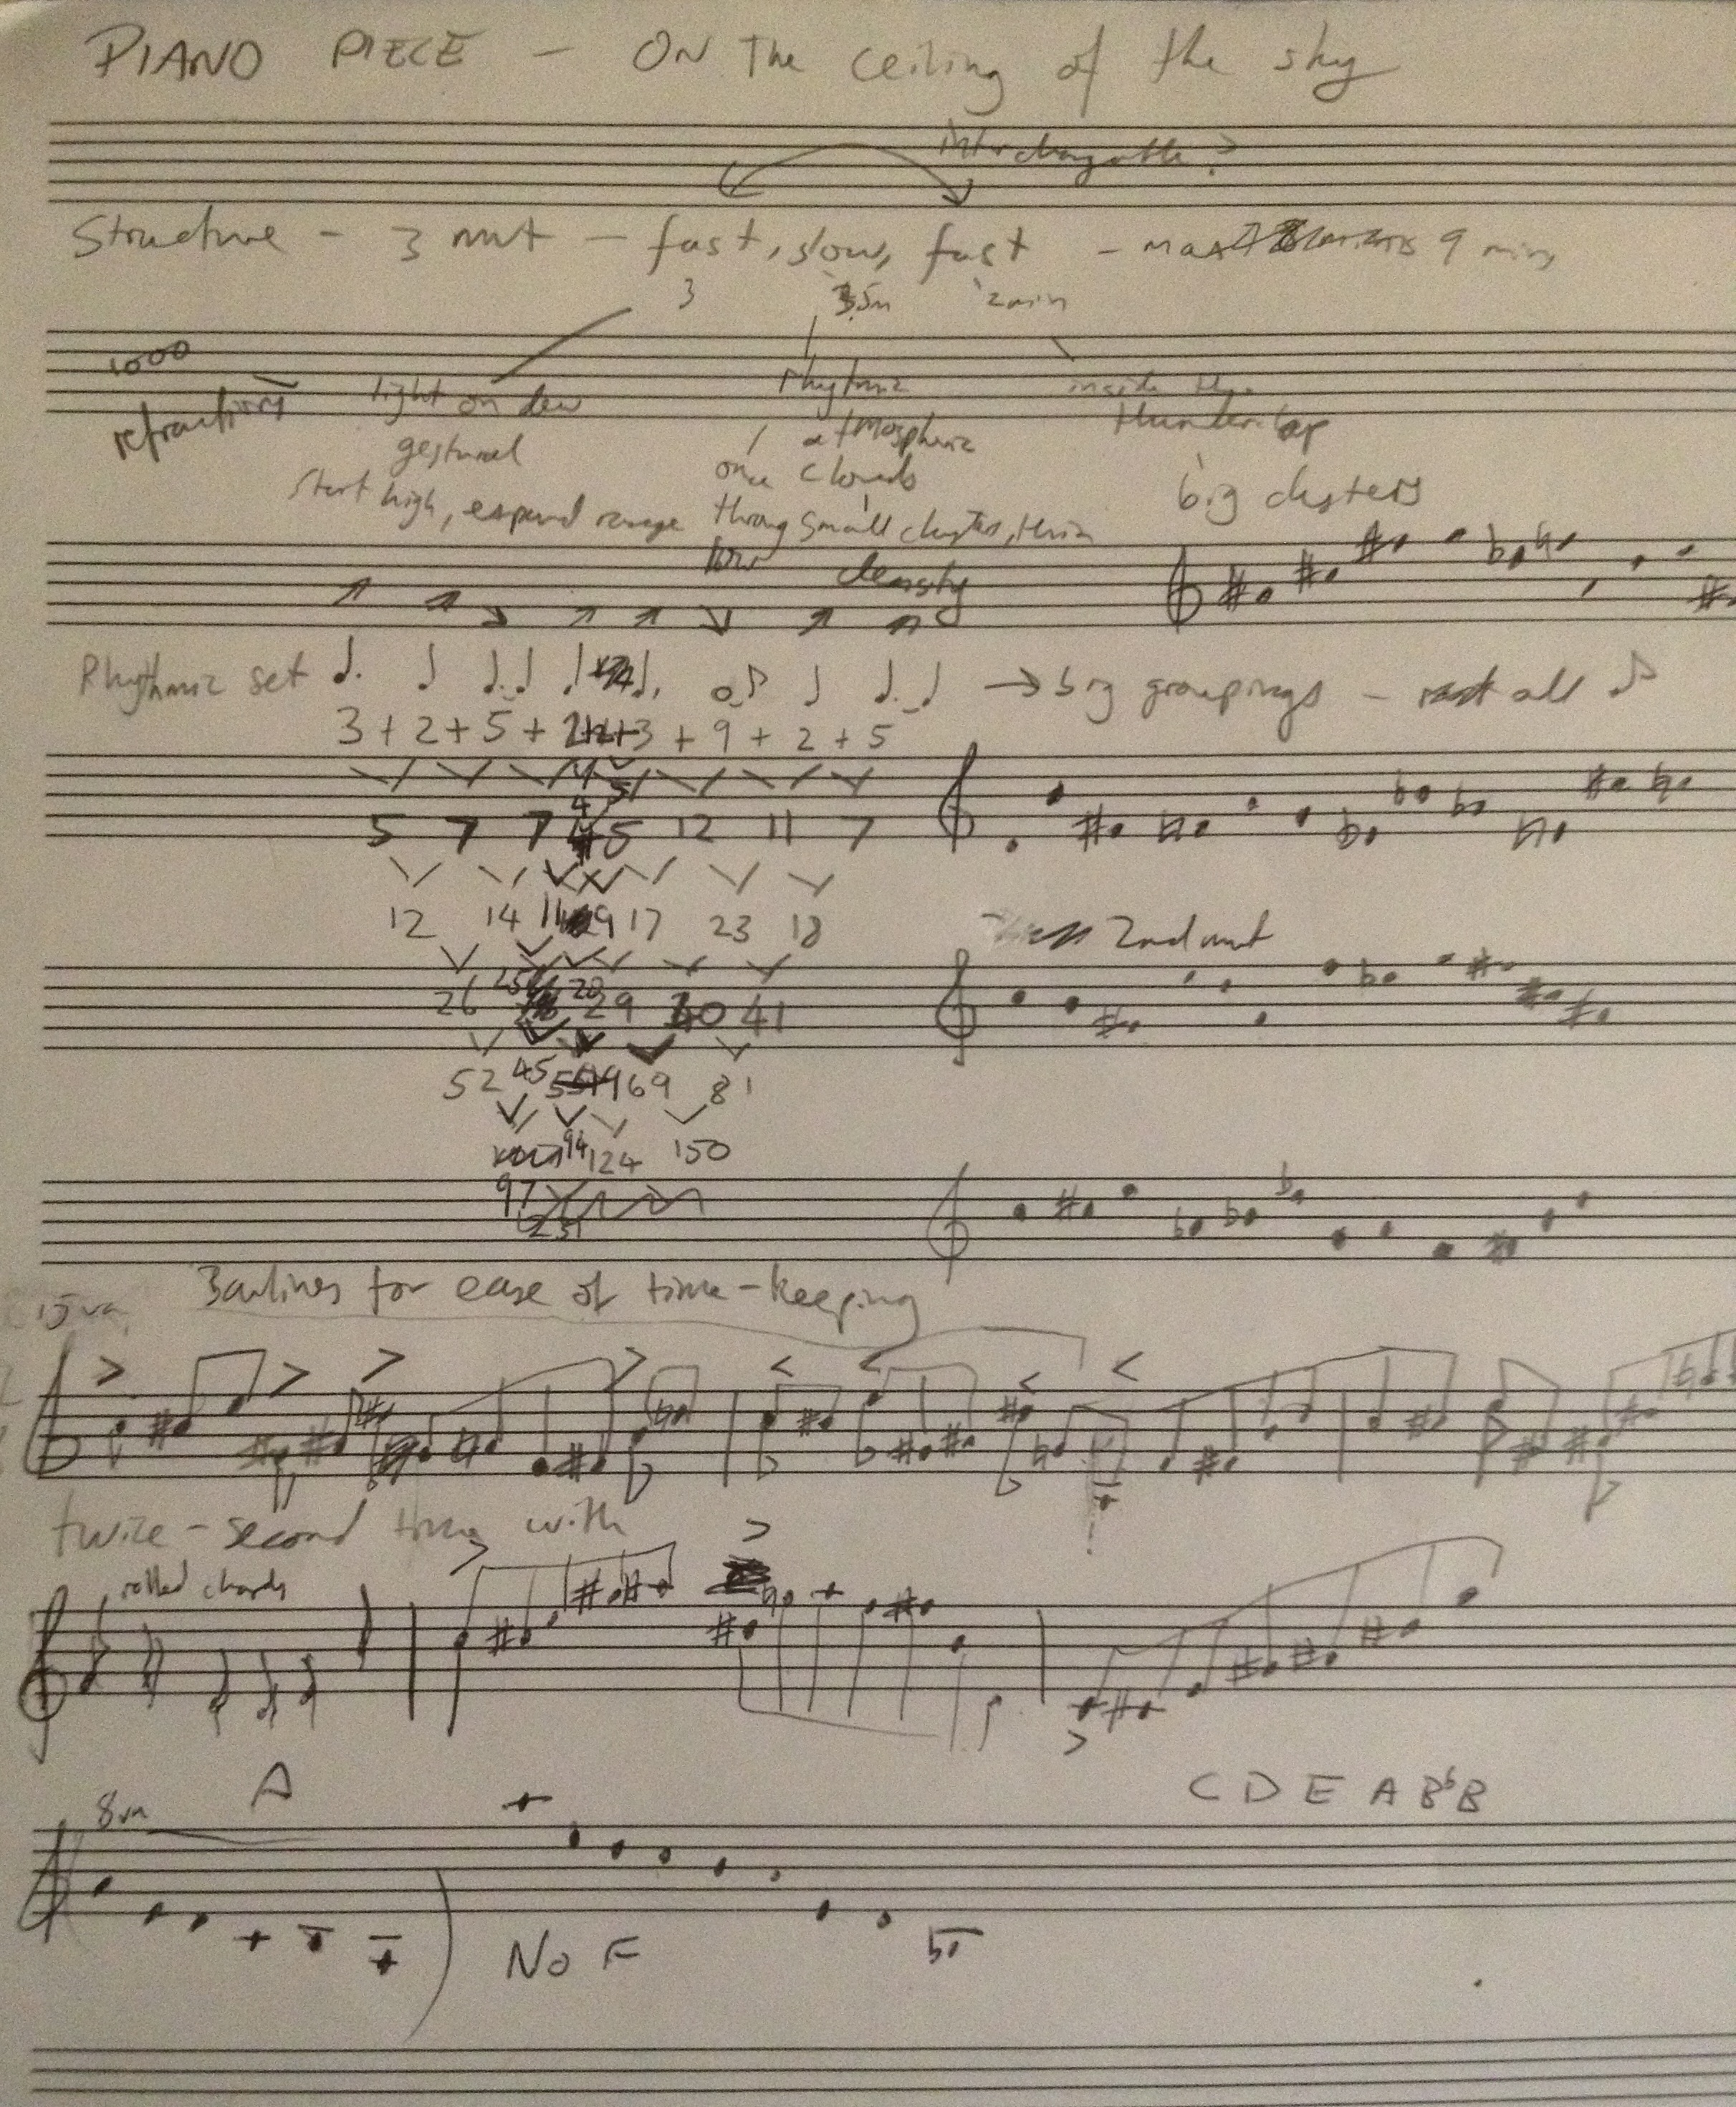 PIANO PIECE - ON The ceiling of the sky
interchangeable?
Structure - 3 mvt - fast, slow, fast - max 9 mins
3 3.5m 2min
1000 refractions
light on dew
gestural
start high, expand range
rhythmic
atmospheric
once clouds
small clusters, thin
low density
inside the
thunderclap
big clusters
Rhythmic set → big groupings - all ♪
3 + 2 + 5 + 3 + 9 + 2 + 5
5 7 7 4 5 12 11 7
12 14 11 9 17 23 18
2nd mvt
26 25 20 29 40 41
52 45 49 69 81
94 124 150
97
Barlines for ease of time-keeping
15va
twice - second time with
rolled chords
8va A
C D E A B♭ B
No F